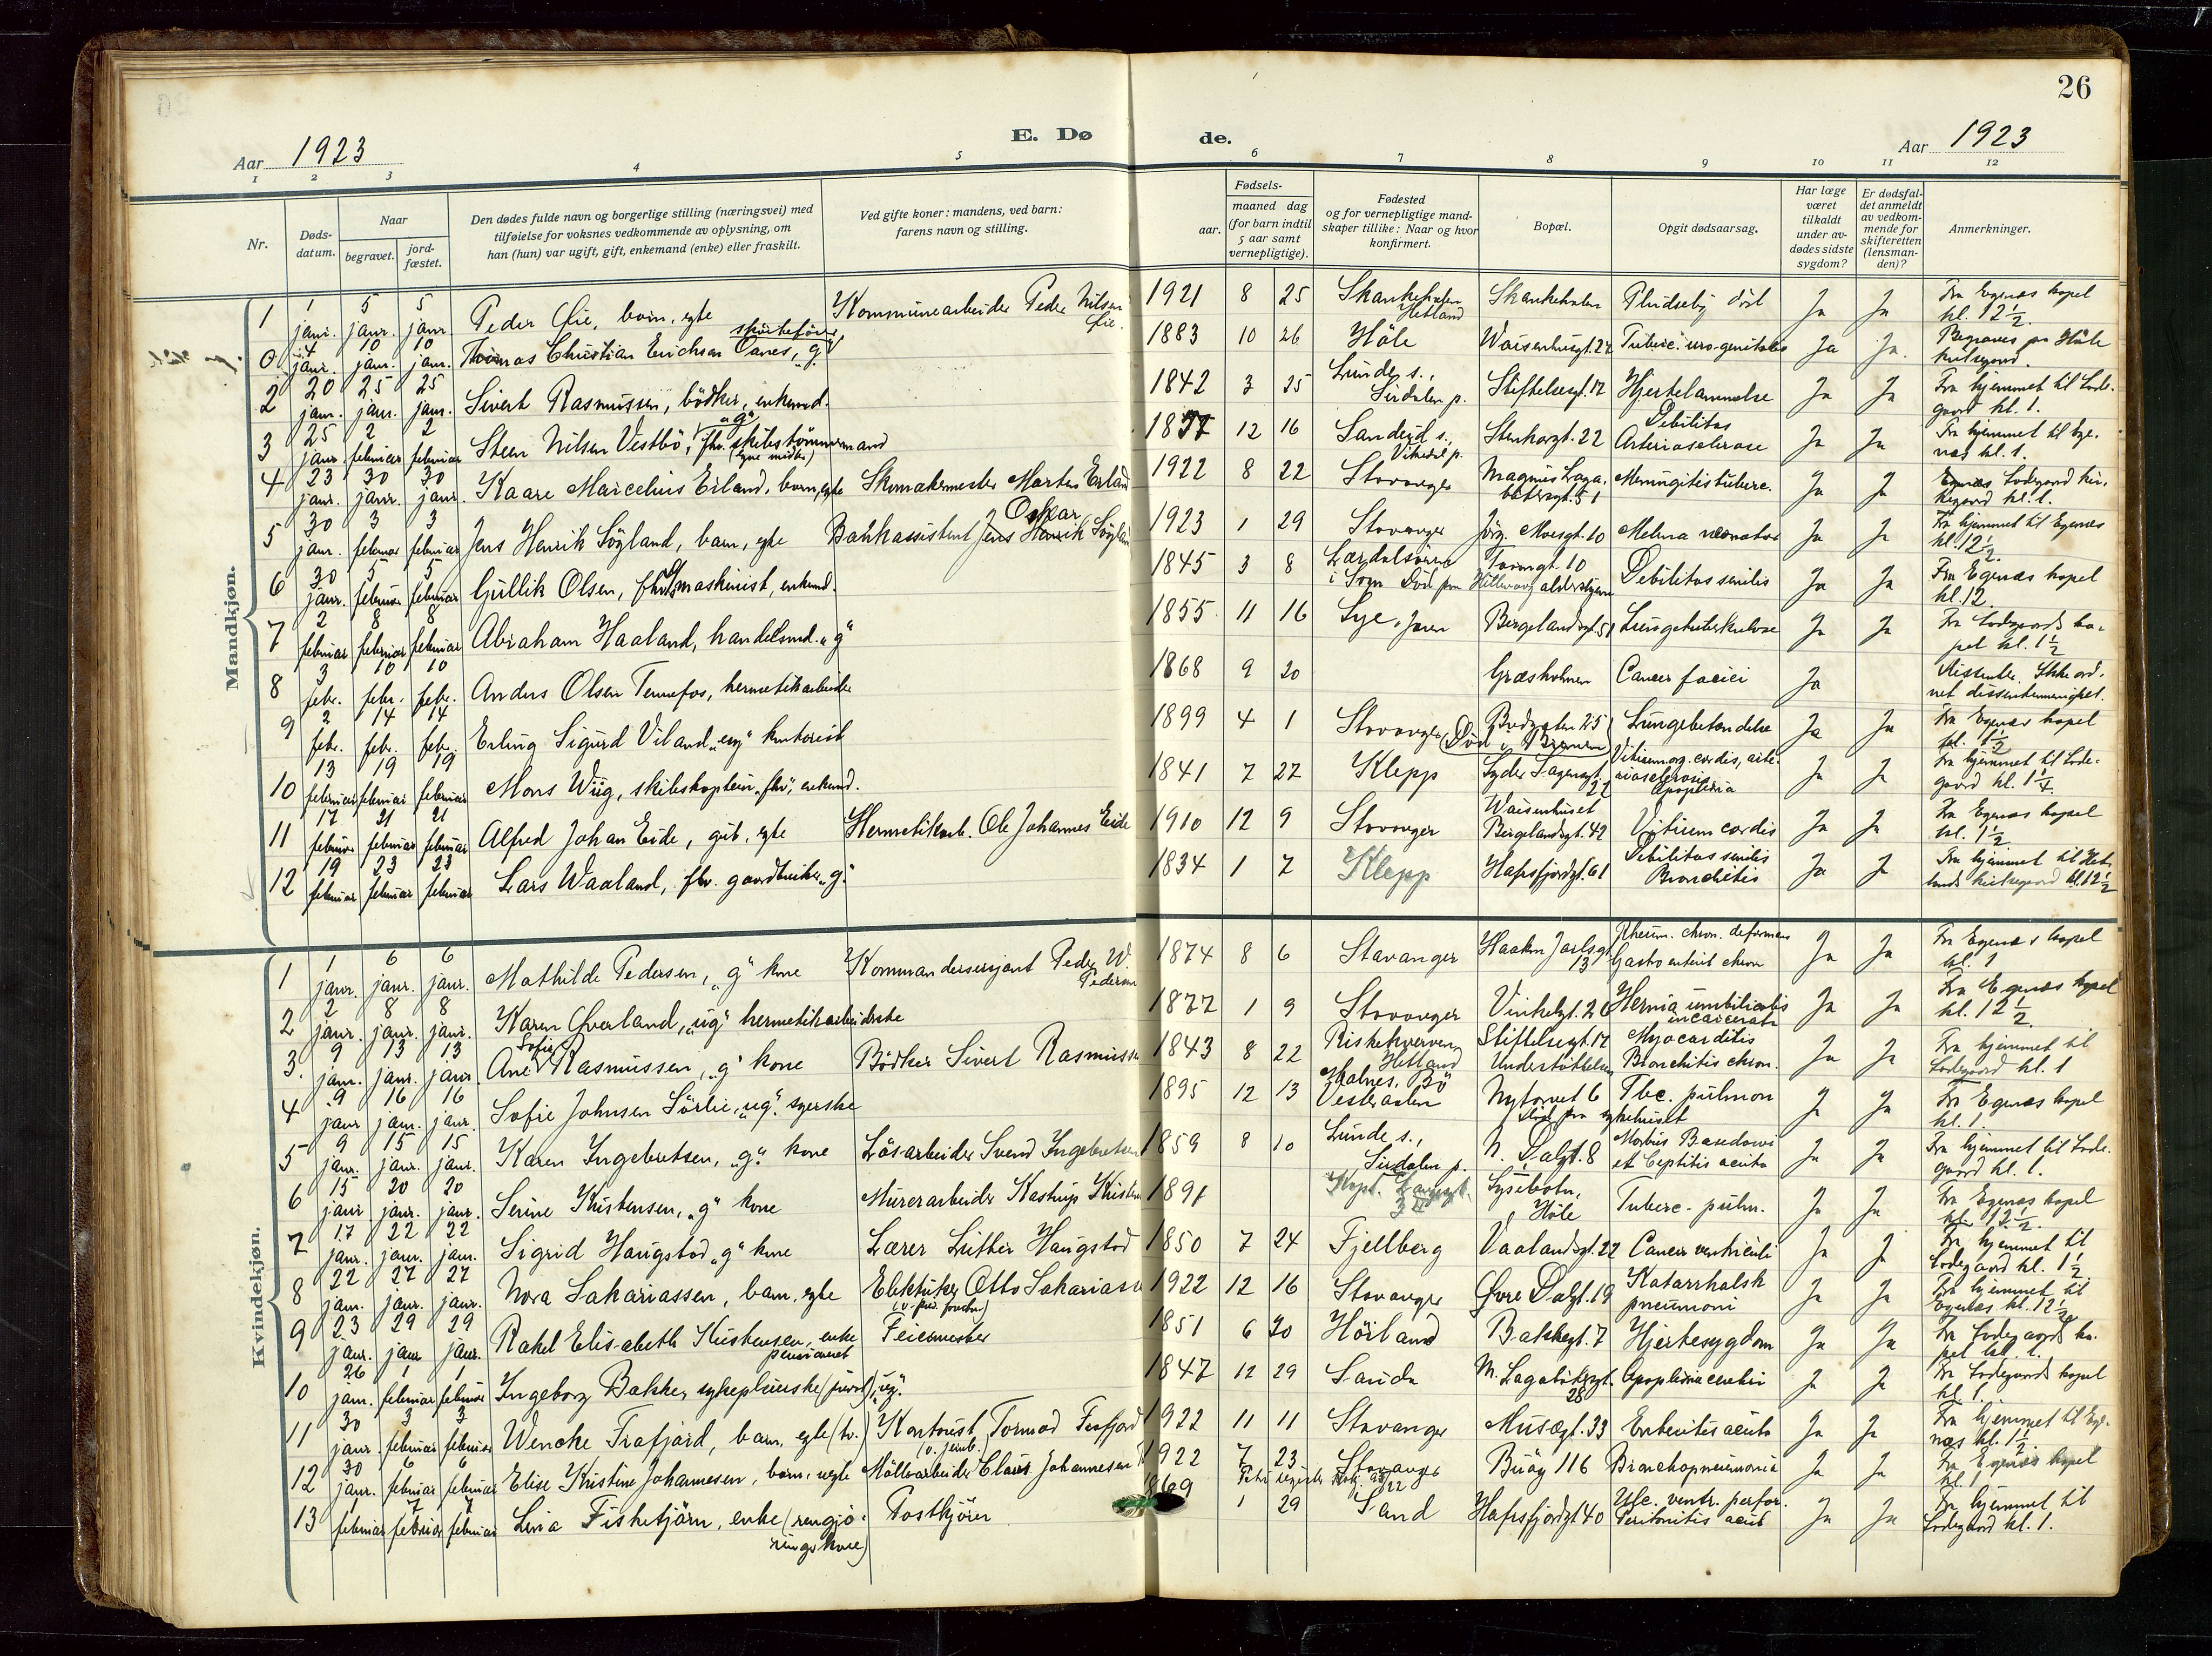 26
Aar 1923
E. Dø de.
Aar 1923
1 2 3 4 5 6 7 8 9 10 11 12
Nr.
Døds-
datum.
Naar
begravet.
jord-
fæstet.
Den dødes fulde navn og borgerlige stilling (næringsvei) med
tilføielse for voksnes vedkommende av oplysning, om
han (hun) var ugift, gift, enkemand (enke) eller fraskilt.
Ved gifte koner: mandens, ved barn:
farens navn og stilling.
Fødsels-
aar.
maaned dag
(for barn indtil
5 aar samt
vernepligtige).
Fødested
og for vernepligtige mand-
skaper tillike: Naar og hvor
konfirmert.
Bopæl.
Opgit dødsaarsag.
Har læge
været
tilkaldt
under av-
dødes sidste
sygdom?
Er dødsfal-
det anmeldt
av vedkom-
mende for
skifteretten
(lensman-
den)?
Anmerkninger.
Mandkjøn.
1 1 janr. 5 janr. 5 janr. Peder barn, egte Kommunearbeider Peder Nilsen 1921 8 25 Skankeholen Hetland Skankeholen Ja Ja Fra Egenæs kapel kl. 12½.
0 4 janr. 10 janr. 10 janr. Thomas Christian Erichsen "g" 1883 10 26 Höle Waisenhusgt. 22 Tuberc. uro-genitalis Ja Ja. Begraves paa Höle kirkegaard.
2 20 janr. 25 janr. 25 janr. Sivert Rasmussen, bödker, enkemd. 1842 3 25 Lunde s., Sirdalen p. Stiftelsesgt. 12 Hjertelammelse Ja Ja Fra hjemmet til Lode-gaard kl. 1.
3 25 janr. 2 februar 2 februar Steen Nilsen Vestbö, "g" fhv. skibstömmermand (egne midler) 1837 12 16 Sandeid s., Vikedal p. Stenkargt. 22 Debilitas Arteriosclerose Ja Ja Fra hjemmet til Ege-næs kl. 1.
4 23 janr. 30 janr. 30 janr. Kaare Marcelius Erland, barn, egte Skomakermester Morten Erland 1922 8 22 Stavanger Magnus Laga-bötersgt. 51 Meningitis tuberc. Ja Ja Lodegaard kir-kegaard kl. 1.
5 30 janr. 3 februar 3 februar Jens Henrik Sögland, barn, egte Bankassistent Jens Oskar Sögland 1923 1 29 Stavanger Jörg. Moesgt. 10 Melena neonator Ja Ja Fra hjemmet til Egenæs kl. 12½.
6 30 janr. 5 februar 5 februar Gullik Olsen, fhv. maskinist, enkemd. 1845 3 8 Lærdalsören i Sogn Torvgt. 10 Död paa Hillevaag aldershjem Debilitas senilis Ja Ja Fra Egenæs kapel kl. 12.
7 2 februar 8 februar 8 februar Abraham Haaland, handelsmd. "g" 1855 11 16 Lye, Jæren Bergelandsgt. 51 Lungetuberkulose Ja Ja Fra Lodegaards ka-pel kl. 1½
8 3 febr. 10 febr. 10 febr. Anders Olsen Tennefos, hermetikarbeider 1868 9 20 Græsholmen Cancer faciei Ja Dissenter. Ikke ord-net dissentermenighet.
9 2 febr. 14 febr. 14 febr. Erling Sigurd Viland "ug" kontorist 1899 4 1 Stavanger Bredgaten 25 (Död i Bremen) Lungebetændelse Ja Ja Fra Egenæs kapel kl. 1½
10 13 februar 19 februar 19 februar Mons Wiig, skibskaptein "fhv", enkemd. 1841 7 27 Klepp Lyder Sagensgt. 22 Vitium org. cordis, arte-riosclerosis Apoplexia Ja Ja Fra hjemmet til Lode-gaard kl. 1¼.
11 17 februar 21 februar 21 februar Alfred Johan Eide, gut, egte Hermetikarb. Ole Johannes Eide 1910 12 9 Stavanger Waisenhuset Bergelandsgt. 42 Vitium cordis Ja Ja Fra Egenæs kapel kl. 1½
12 19 februar 23 februar 23 februar Lars Waaland, fhv. gaardbruker "g". 1834 1 7 Klepp Hafrsfjordgt. 61 Debilitas senilis Bronchitis Ja Ja Fra hjemmet til Het-lands kirkegaard kl. 12½
Kvindekjøn.
1 1 janr. 6 janr. 6 janr. Mathilde Pedersen, "g" kone Kommandersersjant Peder W. Pedersen 1874 8 6 Stavanger Haakon Jarlsgt. 13 Rheum. chron. deformans Gastroenterit chron Ja Ja Fra Egenæs kapel kl. 1
2 2 janr. 8 janr. 8 janr. Karen Överland, "ug" hermetikarbeiderske 1877 1 9 Stavanger Vinkelgt. 26 Hernia umbilicalis incarcerata Ja Ja Fra Egenæs kapel kl. 12½.
3. 9 janr. 13 janr. 13 janr. Ane Sofie Rasmussen, "g" kone Bödker Sivert Rasmussen 1843 8 22 Riskekverven, Hetland Stiftelsesgt. 12 Understöttelse Myocarditis Bronchitis chron. Ja Ja Fra hjemmet til Lodegaard kl. 1
4 9 janr 16 janr. 16 janr. Sofie Johnsen Sörlie, "ug". syerske 1895 12 13 Bö Vesteraalen Nytorvet 6 Död paa sykehuset Tbc. pulmon Ja Ja Fra Egenæs kapel kl. 1.
5 9 janr. 15 janr. 15 janr. Karen Ingebretsen, "g". kone Lösarbeider Svend Ingebretsen 1859 8 10 Lunde s., Sirdalen p. N. Dalgt. 8 Morbus Basedowi Ja Ja Fra hjemmet til Lode-gaard kl. 1.
6 15 janr 20 janr. 20 janr. Serine Kristensen, "g" kone Murerarbeider Kastrup Kristensen 1891 Lysebotn, Höle Tuberc. pulm. Ja Ja Fra Egenæs kapel kl. 12½.
7 17 janr. 22 janr. 22 janr. Sigrid Haugstad "g" kone Lærer Luther Haugstad 1850 7 24 Fjellberg Vaalandsgt. 22 Cancer ventriculi Ja Ja Fra hjemmet til Lodegaard kl. 1½
8 22 janr. 27 janr. 27 janr. Nora Sakariassen, barn, egte Elektriker Otto Sakariassen 1922 12 16 Stavanger Øvre Dalgt. 19 Katarrhalsk pneumoni Ja Ja Fra hjemmet til Egenæs kl. 12½
9 23 janr. 29 janr 29 janr. Rakel Elisabeth Kristensen, enke pensioneret Feiermester 1851 6 20 Hörland Bakkegt. 7 Hjertesygdom Ja Ja Fra Lodegaards ka-pel kl. 1.
10 26 janr. 1 februar 1 februar Ingeborg Bakke, sykepleierske (privat) "ug". 1847 12 29 Sauda M. Lagabötersgt. 28 Apoplexia cerebri Ja Ja Fra Lodegaards kapel kl. 1.
11 30 janr. 3 februar 3 februar Wencke Frafjord, barn, egte (tv.) Kontorist Tormod Frafjord 1922 11 11 Stavanger Musægt. 33 Enteritis acuta Ja Ja Fra hjemmet til Ege-næs kl. 1½.
12 30 janr. 6 februar 6 februar Elise Kristine Johannesen, barn, uegte Möllearbeider Claus Johannesen 1922 7 23 Stavanger Buöy 116 Bronchopneumonia Ja Ja Fra Egenæs kapel kl. 1
13 februar 7 februar 7 februar Lina Fisketjörn, enke (rengjö-ringskone) Postkjörer 1869 1 29 Sand Hafrsfjordgt. 40 Ulc. ventr. perfor. Peritonitis acut Ja Ja Fra hjemmet til Lodegaard kl. 1.